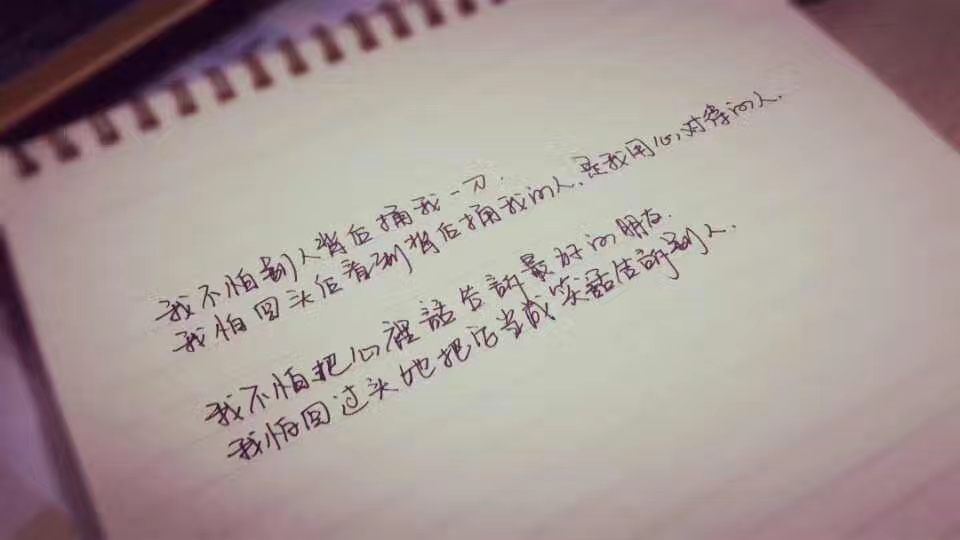 我不怕别人背后捅我一刀.
我怕回头后看到背后捅我的人.是我用心对待的人.
我不怕把心裡話告訴最好的朋友.
我怕回过头她把它当成笑話告訴别人.